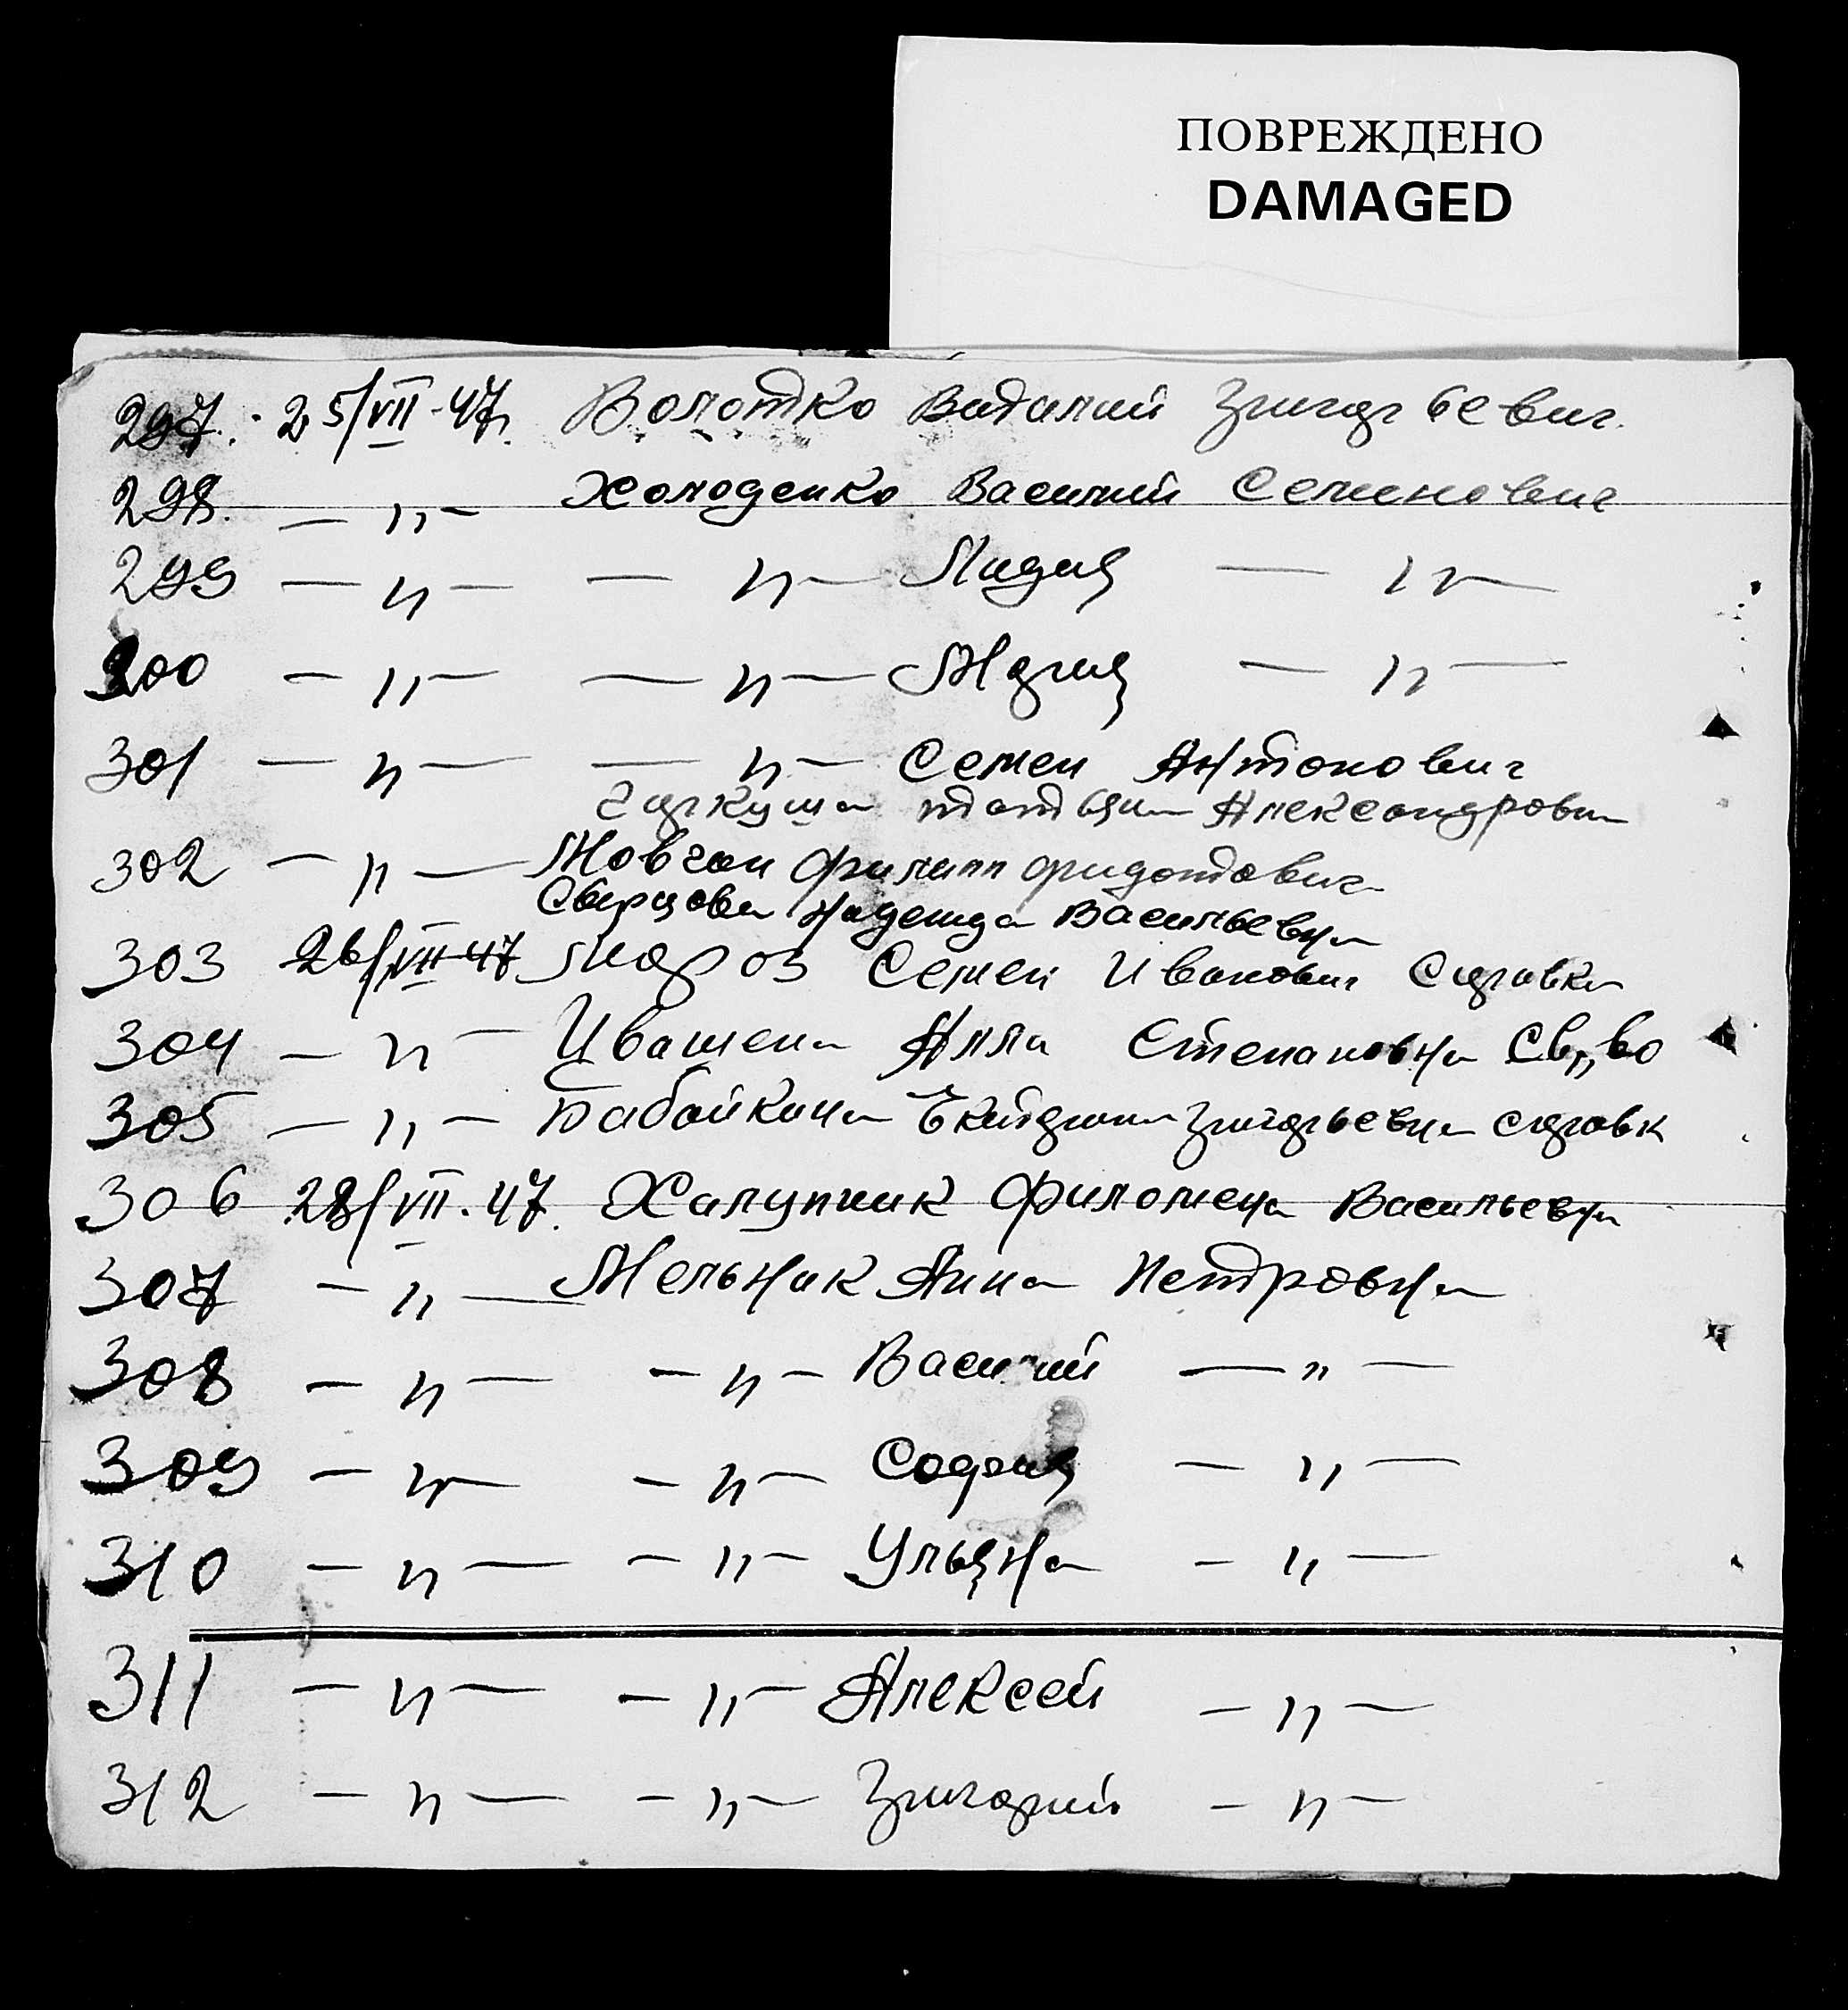 ПОВРЕЖДЕНО
DAMAGED
297. 25/VII-47г. Волотко Виталий Григорьевич.
298. — " — Холоденко Василий Семенович
299 — " — — " — Лидия — " —
300 — " — — " — Мария — " —
301 — " — — " — Семен Антонович
Гаркуша Татьяна Александровн
302 — " — Мовчан Филипп Федотович
Свирцова Надежда Васильевна
303 26/VII-47 Мороз Семен Иванович Справка
304 — " — Ивашена Алла Степановна Св,,во
305 — " — Бабайкина Екатерина Григорьевна справк
306 28/VII.47. Халупник Филомена Васильевна
307 — " — Мельник Анна Петровна
308 — " — — " — Василий — " —
309 — " — — " — София — " —
310 — " — — " — Ульяна — " —
311 — " — — " — Алексей — " —
312 — " — — " — Григорий — " —